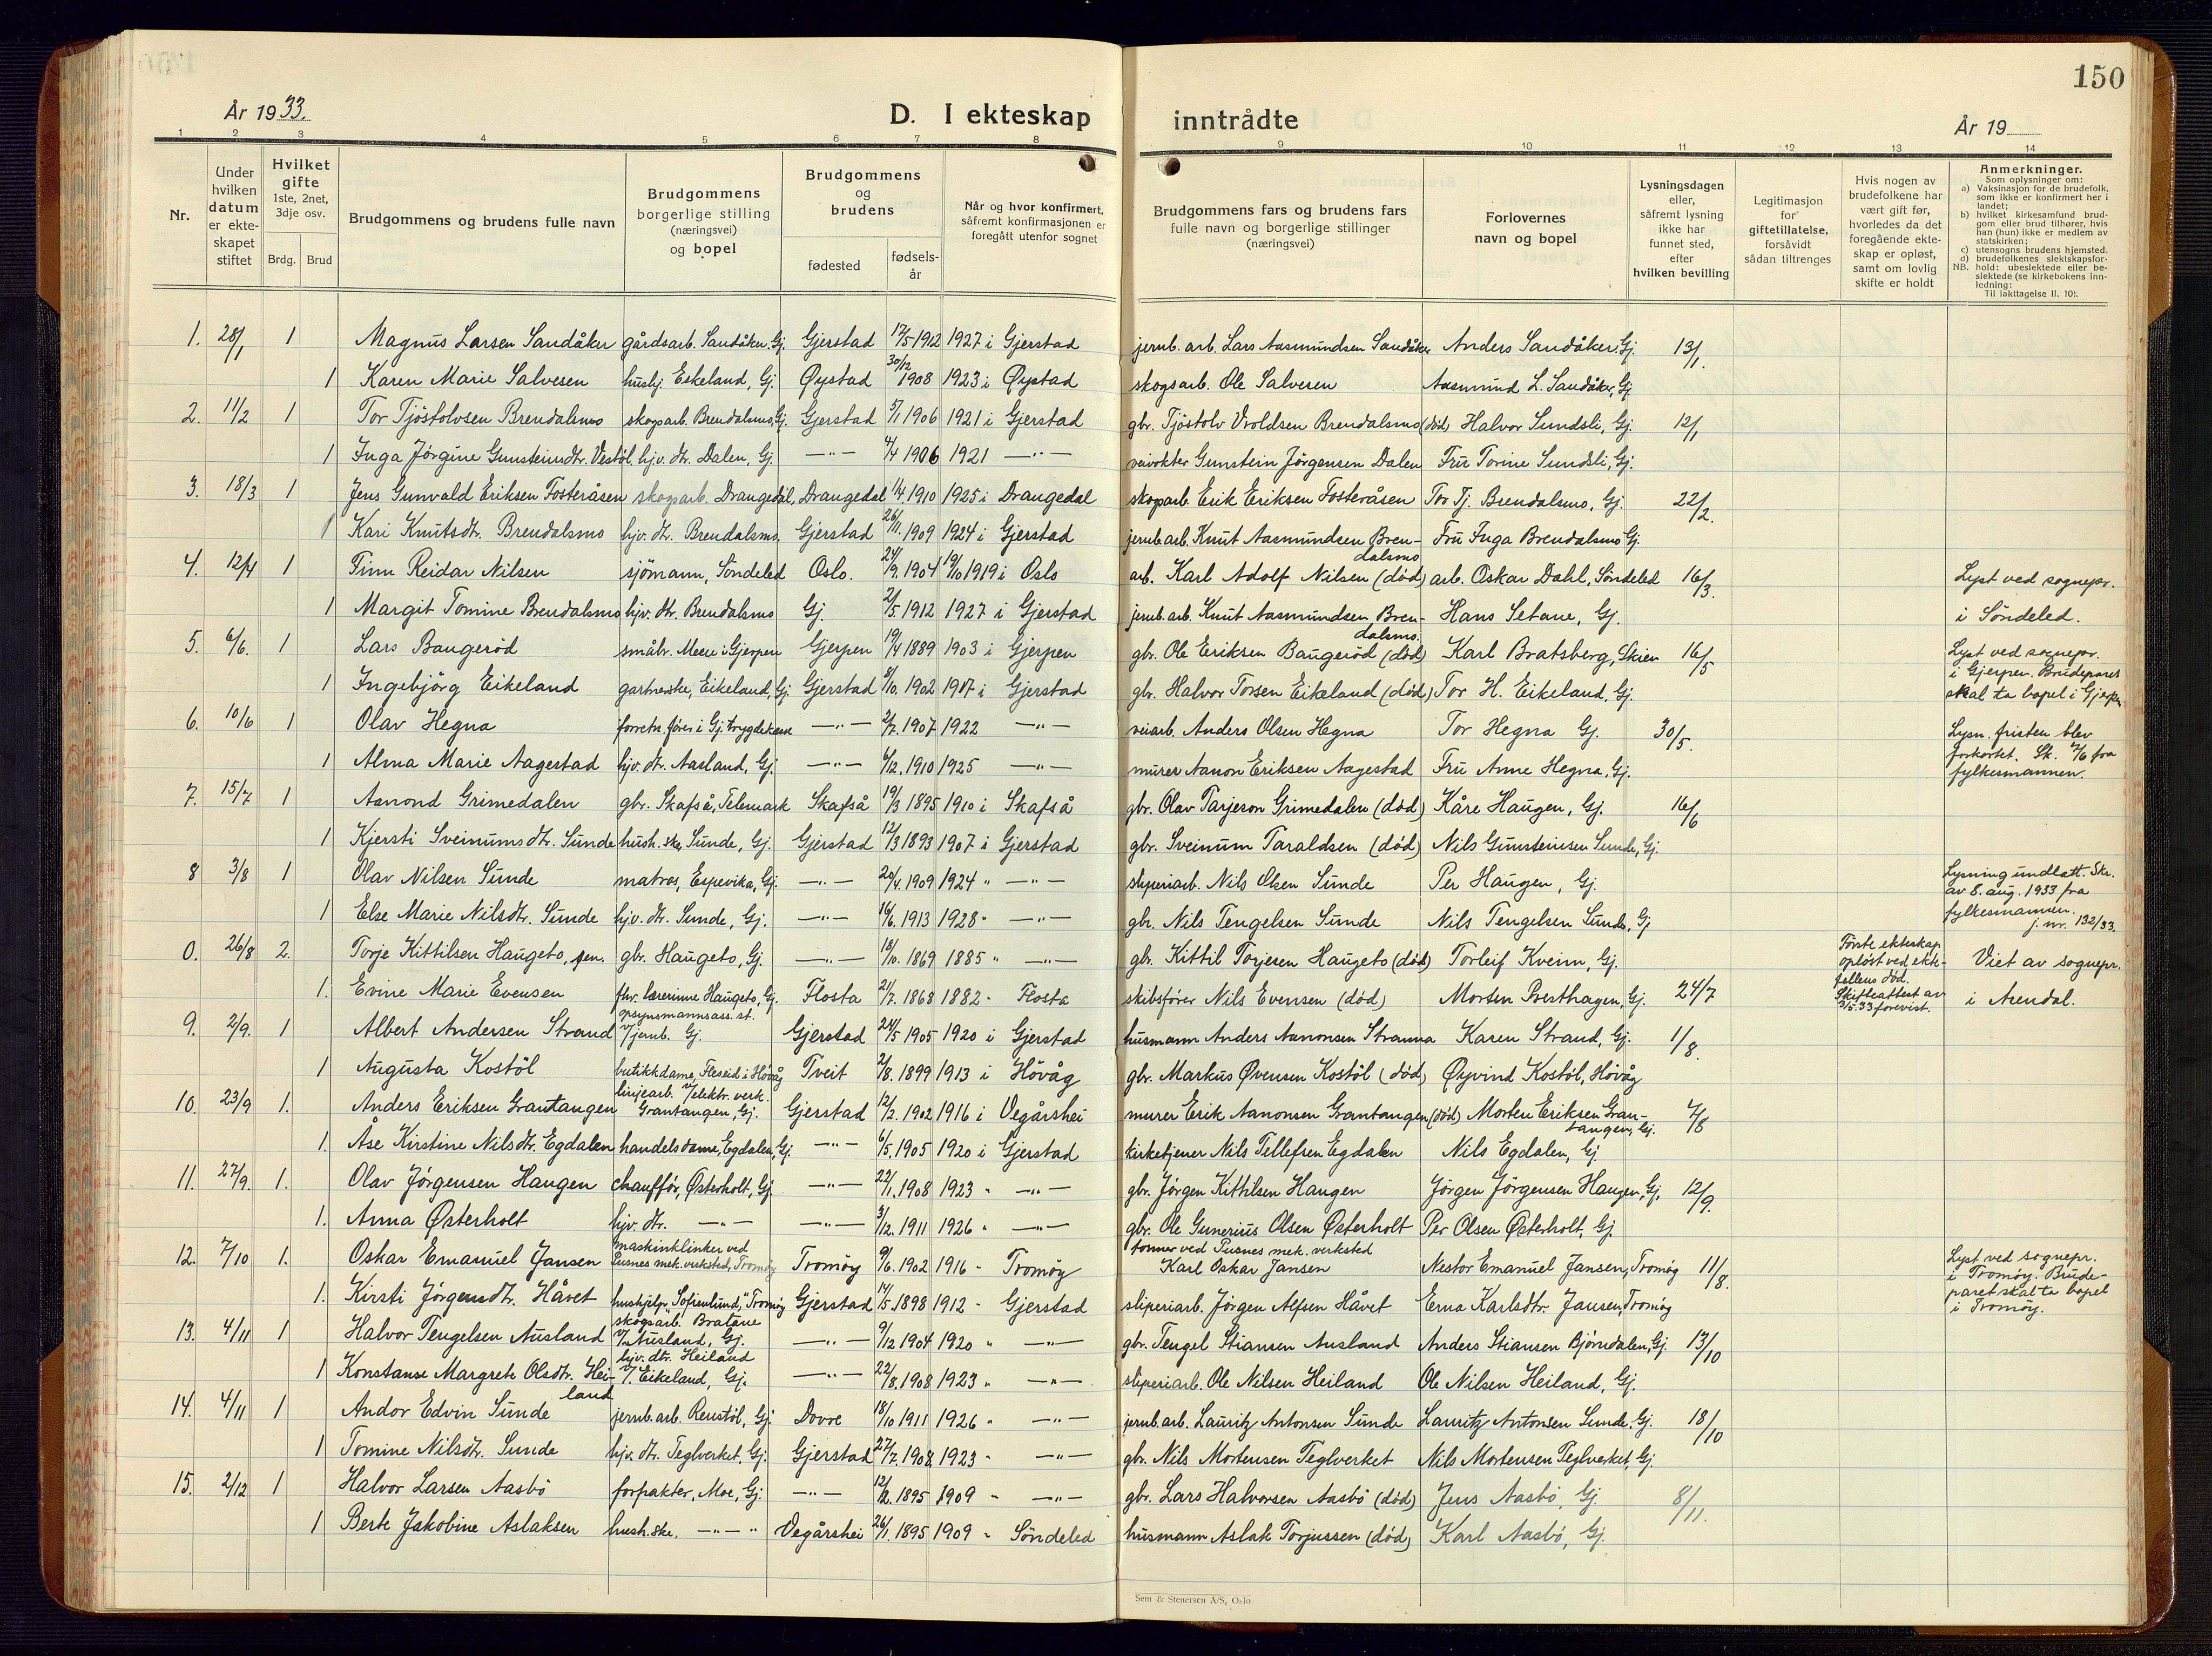 150
År 1933.
D. I ekteskap inntrådte
År 19
1 2 3 4 5 6 7 8 9 10 11 12 13 14
Nr.
Under hvilken datum er ekteskapet stiftet
Hvilket gifte 1ste, 2net, 3dje osv.
Brdg. Brud
Brudgommens og brudens fulle navn
Brudgommens borgerlige stilling (næringsvei) og bopel
Brudgommens og brudens
fødested
fødsels-år
Når og hvor konfirmert, såfremt konfirmasjonen er foregått utenfor sognet
Brudgommens fars og brudens fars fulle navn og borgerlige stillinger (næringsvei)
Forlovernes navn og bopel
Lysningsdagen eller, såfremt lysning ikke har funnet sted, efter hvilken bevilling
Legitimasjon for giftetillatelse, forsåvidt sådan tiltrenges
Hvis nogen av brudefolkene har vært gift før, hvorledes da det foregående ekteskap er opløst, samt om lovlig skifte er holdt
Anmerkninger.
Som oplysninger om:
a) Vaksinasjon for de brudefolk, som ikke er konfirmert her i landet;
b) hvilket kirkesamfund brudgom eller brud tilhører, hvis han (hun) ikke er medlem av statskirken;
c) utensogns brudens hjemsted.
d) brudefolkenes slektskapsforhold: ubeslektede eller beslektede (se kirkebokens innledning:
NB. Til iakttagelse II. 10).
1. 28/1 1 Magnus Larsen Sandåker gårdsarb. Sandåker. Gj. Gjerstad 17/5 1912 1927 i Gjerstad jernb. arb. Lars Aasmundsen Sandåker Anders Sandåker, Gj. 13/1.
1 Karen Marie Salvesen hushj. Eskeland, Gj. Øystad 30/12 1908 1923 i Øystad skogsarb. Ole Salvesen Aasmund L. Sandåker, Gj.
2. 11/2 1 Tor Tjöstolvsen Brendalsmo skogsarb. Brendalsmo, Gj. Gjerstad 5/1 1906 1921 i Gjerstad gbr. Tjöstolv Vroldsen Brendalsmo (död) Halvor Sundsli, Gj. 12/1
1 Inga Jörgine Gunsteinsdtr. Vestöl hjv. dtr. Dalen, Gj. —"— 4/4 1906 1921 —"— veivokter Gunstein Jörgensen Dalen Fru Torine Sundsli, Gj.
3. 18/3 1 Jens Gunvald Eriksen Fosteråsen skogsarb. Drangedal, Drangedal 1/4 1910 1925 i Drangedal skogsarb. Erik Eriksen Fosteråsen Tor Tj. Brendalsmo, Gj. 22/2.
1 Kari Knutsdtr. Brendalsmo hjv. dtr. Brendalsmo. Gjerstad 26/11. 1909 1924 i Gjerstad jernb.arb. Knut Aasmundsen Brendalsmo Fru Inga Brendalsmo Gj.
4. 12/4 1 Finn Reidar Nilsen sjömann, Söndeled Oslo. 24/9. 1904 19/10 1919 i Oslo arb. Karl Adolf Nilsen (död) arb. Oskar Dahl, Söndeled 16/3. Lyst ved sognepr.
1 Margit Tomine Brendalsmo hjv. dtr. Brendalsmo Gj. 2/5 1912 1927 i Gjerstad jernb. arb. Knut Aasmundsen Brendalsmo. Hans Setane, Gj. i Söndeled.
5. 6/6. 1 Lars Baugeröd småbr. Meen i Gjerpen Gjerpen 19/4 1889 1903 i Gjerpen gbr. Ole Eriksen Baugeröd (död) Karl Bratsberg, Skien 16/5 Lyst ved sognepr. i Gjerpen. Brudeparet
1 Ingebjörg Eikeland gartnerske, Eikeland, Gj. Gjerstad 8/10. 1902 1907 i Gjerstad gbr. Halvor Torsen Eikeland (död) Tor H. Eikeland, Gj. skal ta bopel i Gjerpen
6. 10/6 1 Olav Hegna forretn. förer i Gj. trygdekasse —"— 2/7. 1907 1922 —"— veiarb. Anders Olsen Hegna Tor Hegna Gj. 30/5. Lysn. fristen blev
1 Alma Marie Aagestad hjv. dtr. Aasland, Gj. —"— 6/12. 1910 1925 —"— murer Aanon Eriksen Aagestad Fru Anne Hegna, Gj. forkortet. Sk. 7/6 fra fylkesmannen.
7. 15/7 1 Aanond Grimedalen gbr. Skafså, Telemark Skafså 19/3 1895 1910 i Skafså gbr. Olav Tarjeson Grimedalen (död) Kåre Haugen, Gj. 16/6
1 Kjersti Sveinumsdtr. Sunde hush. ske, Sunde, Gj. Gjerstad 12/3 1893 1907 i Gjerstad gbr. Sveinum Taraldsen (död) Nils Gunsteinsen Sunde, Gj.
8 3/8 1 Olav Nilsen Sunde matros, Espevika, Gj. —"— 20/4. 1909 1924 " —"— sliperiarb. Nils Olsen Sunde Per Haugen, Gj. Lysning undlatt. Skr. av 8. aug. 1933 fra
1 Else Marie Nilsdtr. Sunde hjv. dtr. Sunde, Gj. —"— 16/6. 1913 1928 " —"— gbr. Nils Tengelsen Sunde Nils Tengelsen Sunde, Gj fylkesmannen. j. nr. 132/33.
0. 26/8 2. Torje Kittilsen Haugeto, sen. gbr. Haugeto, Gj. —"— 18/10. 1869 1885 " —"— gbr. Kittil Torjesen Haugeto (död) Torleif Kveim, Gj. Förste ekteskap oplöst ved ekte- Viet av sognepr.
1. Evine Marie Evensen fhv. lærerinne Haugeto, Gj. Flosta 21/7. 1868 1882 " Flosta skibsförer Nils Evensen (död) Morten Presthagen, Gj. 24/7 fellens död. Skifteattest av 3/5.33 forevist. i Arendal.
9. 2/9. 1 Albert Andersen Strand opsynsmannsass. st. v/ jernb. Gj. Gjerstad 24/5 1905 1920 i Gjerstad husmann Anders Aanonsen Stranna Karen Strand, Gj. 1/8.
1 Augusta Kostöl butikkdame, Fleseid i Hövåg Tveit 2/8. 1899 1913 i Hövåg gbr. Markus Øvensen Kostöl (död) Øyvind Kostöl, Hövåg
10. 23/9 1. Anders Eriksen Grantangen linjearb. v/elektr. verk. Grantangen, Gj. Gjerstad 12/2. 1902 1916 i Vegårshei murer Erik Aanonsen Grantangen (död) Morten Eriksen Grantangen, Gj. 7/8
1. Åse Kirstine Nilsdtr. Egdalen handelsdame, Egdalen, Gj —"— 6/5. 1905 1920 i Gjerstad kirketjener Nils Tellefsen Egdalen Nils Egdalen, Gj
11. 27/9. 1. Olav Jörgensen Haugen chaufför, Østerholt, Gj. —"— 22/1. 1908 1923 " —"— gbr. Jörgen Kittilsen Haugen Jörgen Jörgensen Haugen, Gj. 12/9.
1. Anna Østerholt hjv. dtr. —"— —"— 3/12. 1911 1926 " —"— gbr. Ole Gunerius Olsen Østerholt Per Olsen Østerholt, Gj.
12. 7/10 1. Oskar Emanuel Jansen maskinklinker ved Pusnes mek. verksted, Tromöy Tromöy 9/6. 1902 1916 " Tromöy former ved Pusnes mek. verksted Karl Oskar Jansen Nestor Emanuel Jansen, Tromöy 11/8. Lyst ved sognepr. i Tromöy. Brude-
1. Kirsti Jörgensdtr. Håvet hushjelp, "Sofienlund," Tromöy Gjerstad 14/5 1898 1912 " Gjerstad sliperiarb. Jörgen Alfsen Håvet Erna Karlsdtr. Jansen, Tromöy paret skal ta bopel i Tromöy.
13. 4/11 1 Halvor Tengelsen Ausland skogsarb. Bratane v/ Ausland, Gj. —"— 9/12 1904 1920 " —"— gbr. Tengel Stiansen Ausland Anders Stiansen Björndalen, Gj. 13/10
1 Konstanse Margrete Olsdtr. Heiland hjv. dtr. Heiland v/. Eikeland, Gj. —"— 22/8. 1908 1923 " —"— sliperiarb. Ole Nilsen Heiland Ole Nilsen Heiland, Gj.
14. 4/11 1 Andor Edvin Sunde jernb. arb. Renstöl, Gj. Dovre 18/10 1911 1926 " —"— jernb. arb. Lauritz Antonsen Sunde Lauritz Antonsen Sunde, Gj. 18/10
1 Tomine Nilsdtr. Sunde hjv. dtr. Teglverket, Gj. Gjerstad 27/7. 1908 1923 " —"— gbr. Nils Mortensen Teglverket Nils Mortensen Teglverket, Gj.
15. 2/12 1 Halvor Larsen Aasbö forpakter, Moe, Gj. —"— 1895 1909 " —"— gbr. Lars Halvorsen Aasbö (död) Jens Aasbö, Gj. 8/11.
1 Berte Jakobine Aslaksen hush. ske. —"— " Vegårshei 26/1. 1895 1909 " Söndeled husmann Aslak Torjussen (död) Karl Aasbö, Gj.
Sem & Stenersen A/S, Oslo